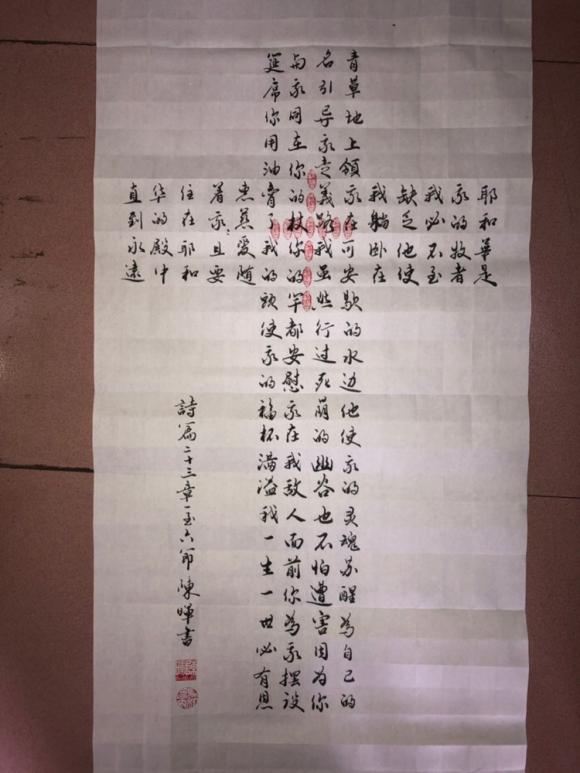 耶和華是
我的牧者
我必不至
缺乏他使
我躺卧在
青草地上領我在可安歇的水边他使我的灵魂苏醒為自己的
名引导我走義路我虽然行过死荫的幽谷也不怕遭害因为你
与我同在你的杖你的竿都安慰我在我敌人面前你為我摆设
筵席你用油膏了我的頭使我的福杯满溢我一生一世必有恩
惠慈愛随
着我且要
住在耶和
华的殿中
直到永遠
詩篇二十三章一至六節陳暉書